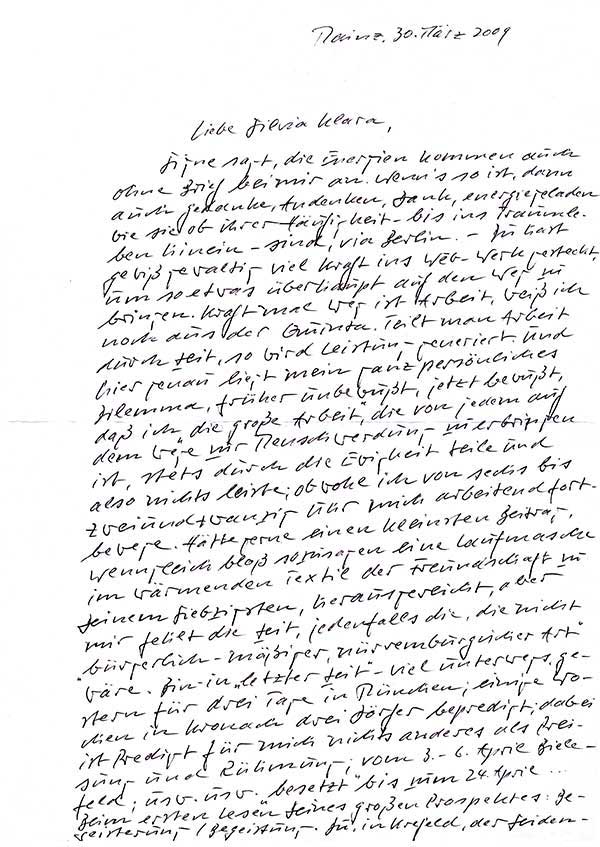 Mainz, 30. März 2009
Liebe Silvia Klara,
Signe sagt, die Energien kommen auch
ohne Brief bei mir an. Wenn's so ist, dann
auch Gedanke, Andenken, Dank, energiegeladen
wie sie ob ihrer Häufigkeit – bis ins Traumle-
ben hinein – sind, via Berlin. – Du hast
gewiß gewaltig viel Kraft ins Web-Werk gesteckt,
um so etwas überhaupt auf den Weg zu
bringen. Kraft mal Weg ist Arbeit, weiß ich
noch aus der Quinta. Teilt man Arbeit
durch Zeit, so wird Leistung generiert. Und
hier genau liegt mein ganz persönliches
Dilemma, früher unbewußt, jetzt bewußt,
daß ich "die große Arbeit, die von jedem auf
dem Wege zur Menschwerdung zu erbringen
ist, stets durch die Ewigkeit teile und
also nichts leiste; obwohl ich von sechs bis
zweiundzwanzig Uhr mich arbeitend fort-
bewege. Hätte gerne einen kleinsten Beitrag,
wenngleich bloß sozusagen eine Laufmasche
im wärmenden Textil der Freundschaft zu
seinem Siebzigsten, herausgereicht, aber
mir fehlt die Zeit, jedenfalls die, die nicht
"bürgerlich-mäßiger, nürrenburgischer Art"
wäre. Bin in "letzter Zeit" viel unterwegs, ge-
stern für drei Tage in München; einige Wo-
chen in Kronach drei Dörfer bepredigt; dabei
ist Predigt für mich nichts anderes als Prei-
sung und Rühmung; vom 3.–6. April Biele-
feld; usw. usw. "besetzt" bis zum 24. April ...
Beim ersten Lesen Deines großen Prospektes: Be-
geisterung / Begeistung. Du, in Krefeld, der Seiden-